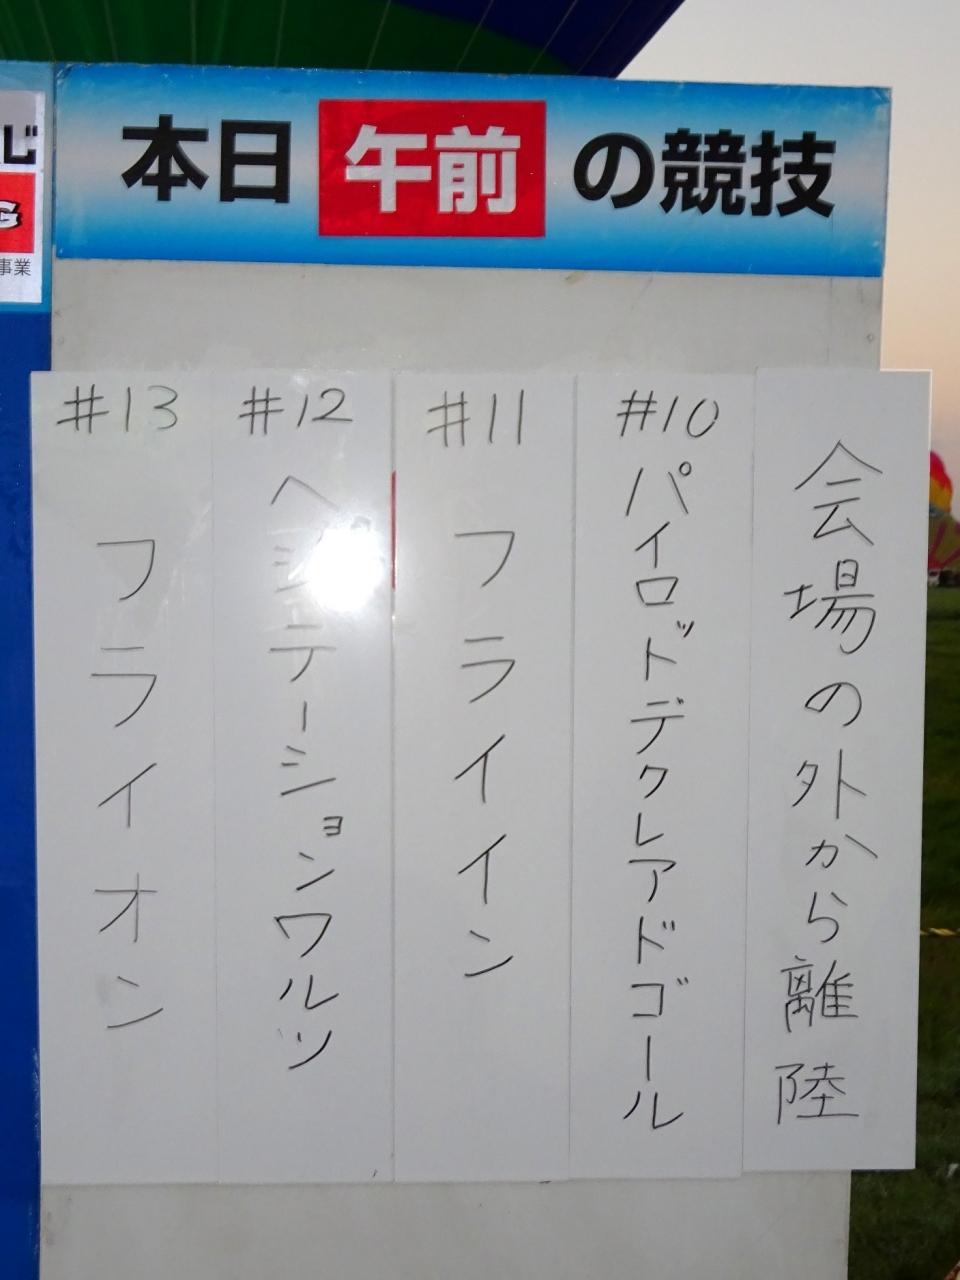 本日 午前 の競技
会場の外から離陸
#10
パイロッドデクレアドゴール
#11
フライイン
#12
ヘジテーションワルツ
#13
フライオン
じ
G
事業